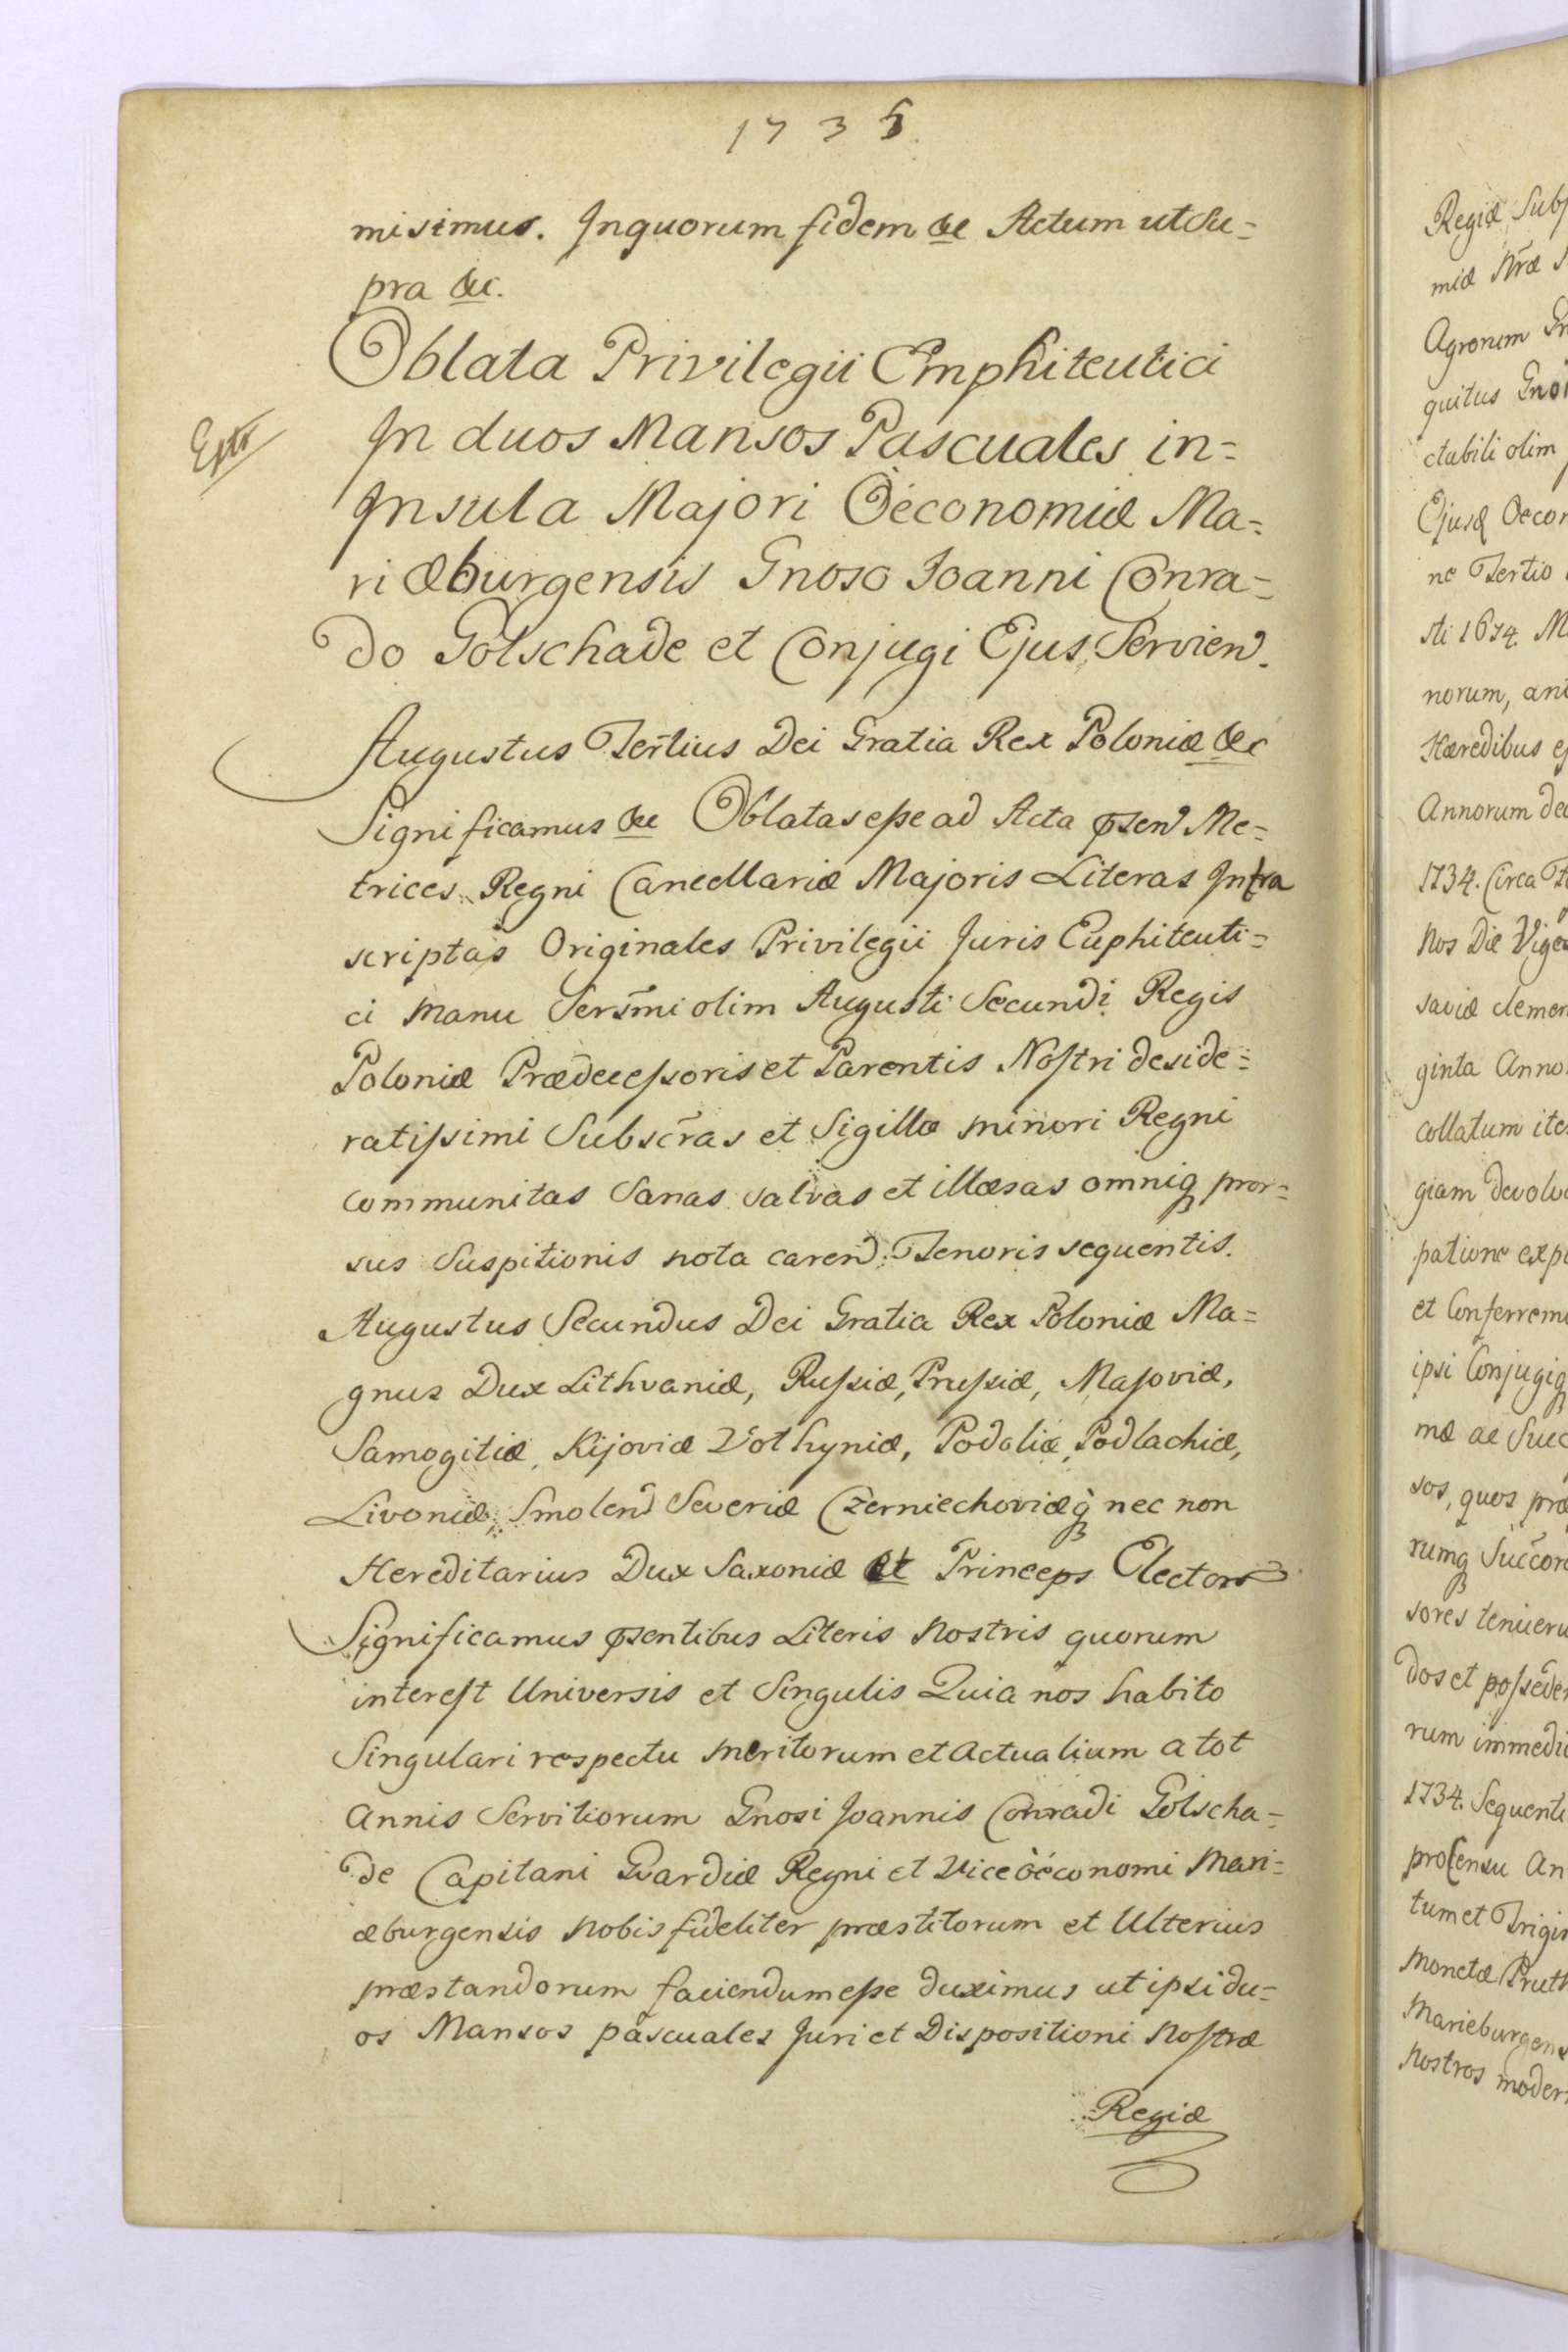 1735.
misimus. Inquorum fidem &c Actum ut Su=
pra &c.
Oblata Privilegii Emphiteutici
In duos Mansos Pascuales in=
Insula Majori Oeconomiæ Ma=
riæburgensis Gnoso Joanni Conra=
do Golschade et Conjugi Ejus Servien.
Extr
Augustus Tertius Dei Gratia Rex Poloniæ &c
Significamus &c Oblatas esse ad Acta psen Me=
trices Regni Cancellariæ Majoris Literas Infra
scriptas Originales Privilegii Juris Euphiteuti=
ci manu Sersmi olim Augusti Secundi Regis
Poloniæ Prædecessoris et Parentis Nostri deside=
ratissimi Subscras et Sigillo minori Regni
communitas Sanas salvas et illæsas omniq pror=
sus Suspitionis nota caren. Tenoris sequentis.
Augustus Secundus Dei Gratia Rex Poloniæ Ma=
gnus Dux Lithvaniæ, Russiæ, Prussiæ, Masoviæ,
Samogitiæ, Kijoviæ Volhyniæ, Podoliæ, Podlachiæ,
Livoniæ, Smolen Severiæ Czerniechoviæq nec non
Hereditarius Dux Saxoniæ et Princeps Elector
Significamus psentibus Literis Nostris quorum
interest Universis et Singulis Quia nos habito
Singulari respectu meritorum et Actualium a tot
annis Servitiorum Gnosi Joannis Conradi Golscha=
de Capitani Gvardiæ Regni et Vice oeconomi Mari=
æburgensis Nobis fideliter præstitorum et Ulterius
præstandorum faciendum esse duximus ut ipsi du=
os Mansos pascuales Juri et Dispositioni Nostræ
Regiæ
Regiæ Subj
miæ Nræ
Agrorum
quitus
ctabili olim
Ejusq Oecon
ne Tertio
sti 1674. M
norum, an
Hæredibus ej
Annorum de
1734. Circa
Nos Die Vige
saviæ clemen
ginta Anno
collatum ite
giam devolu
patione exp
et Conferrem
ipsi Conjugiq
mæ ac Suc
sos, quos præ
rumq Succor
sores tenuer
dos et posseder
rum immedi
1734. Sequenti
pro Censu An
tum et Trigin
Monetæ Pruth
Marieburgens
Nostros moder